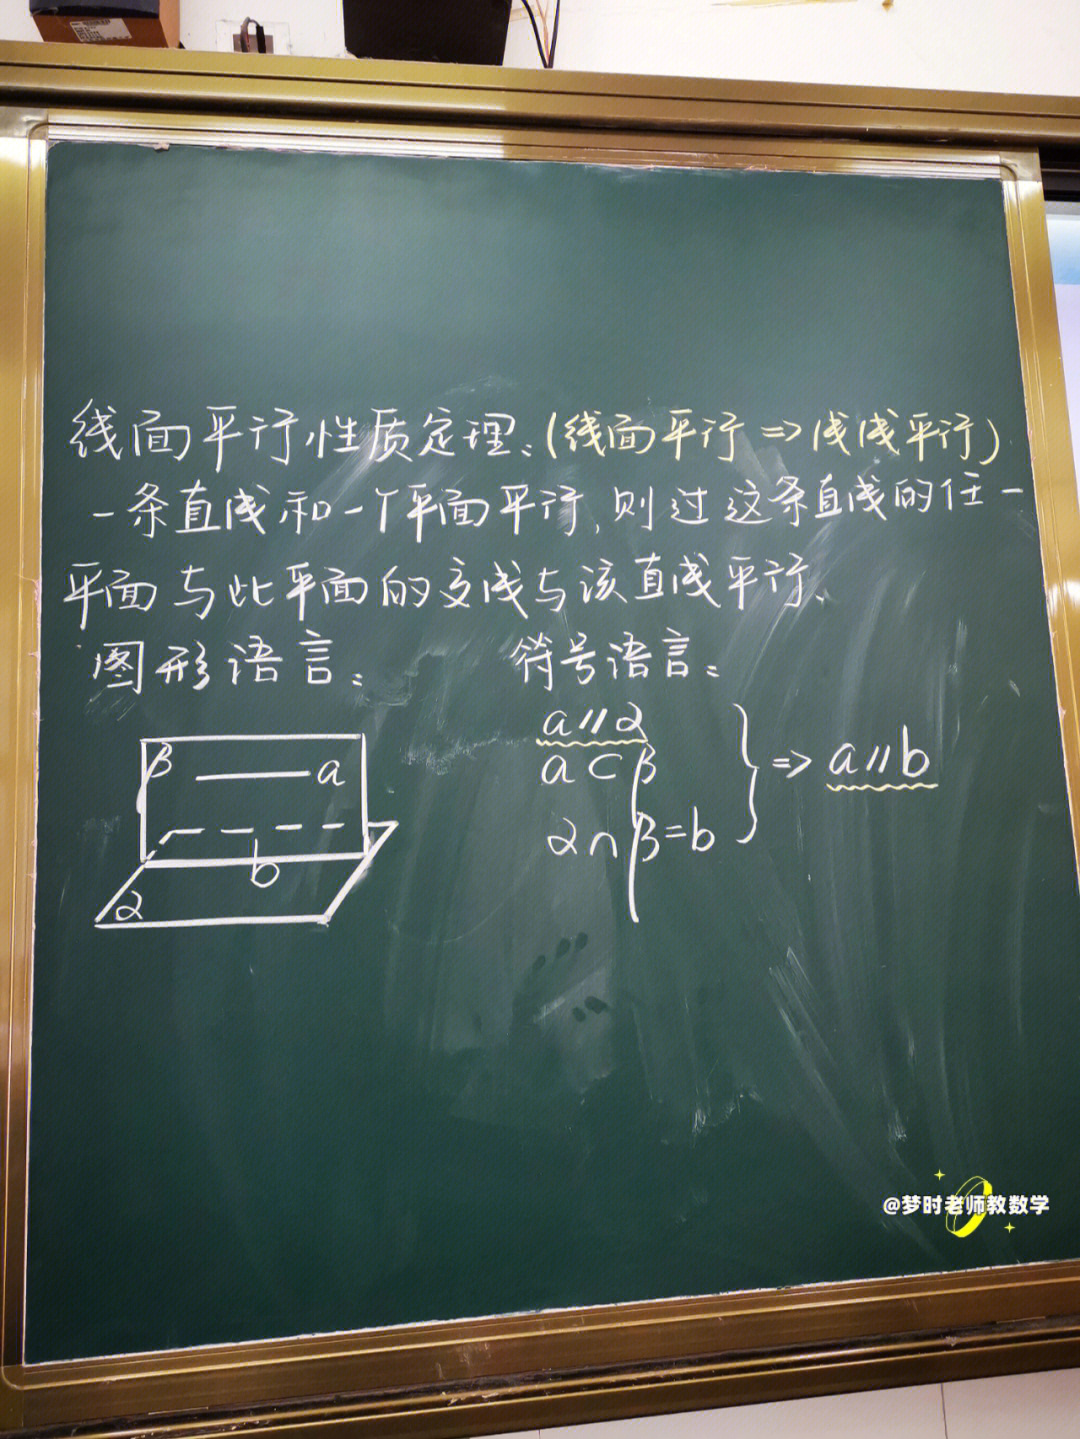 线面平行性质定理:(线面平行=>线线平行)
一条直线和一个平面平行,则过这条直线的任一
平面与此平面的交线与该直线平行、
图形语言:
符号语言:
β a
b
α
a//α
a⊂β
α∩β=b
} => a//b
@梦时老师教数学